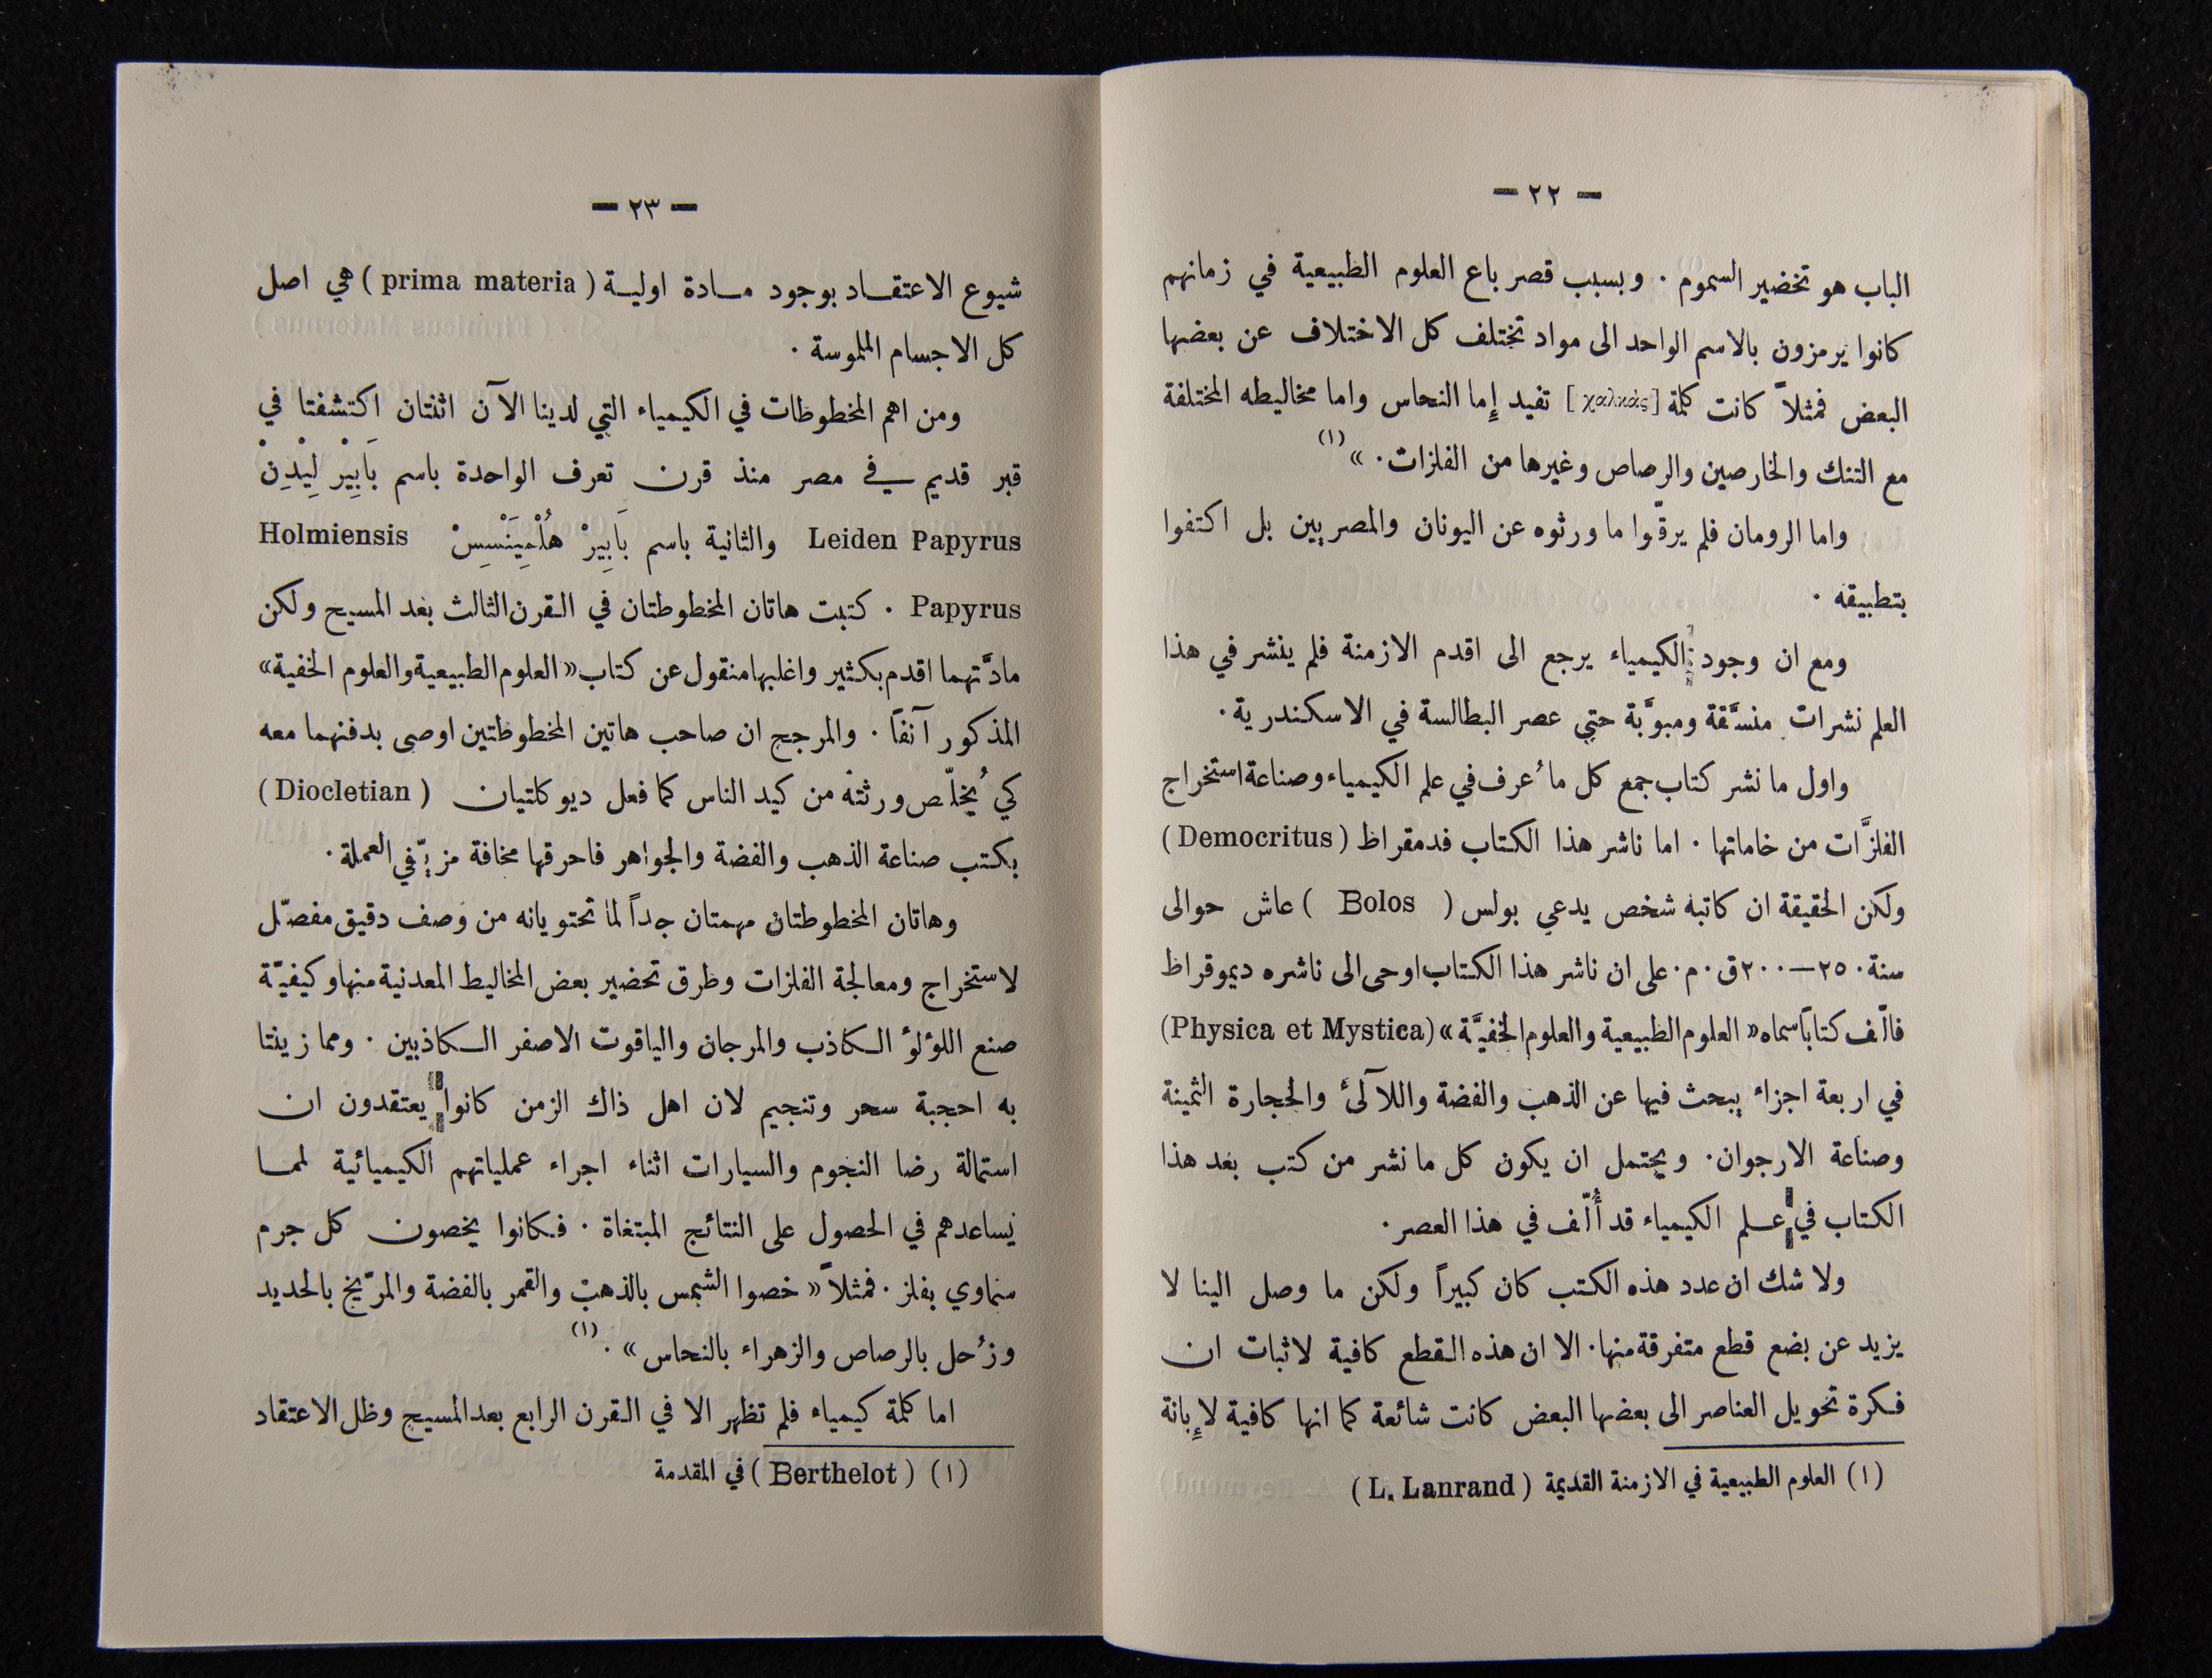 — ٢٢ —
الباب هو تحضير السموم . وبسبب قصر باع العلوم الطبيعية في زمانهم
كانوا يرمزون بالاسم الواحد الى مواد تختلف كل الاختلاف عن بعضها
البعض فمثلاً كانت كلمة [χαλκὰς] تفيد إِما النحاس واما مخاليطه المختلفة
مع التنك والخارصين والرصاص وغيرها من الفلزات. » (١)
واما الرومان فلم يرقّوا ما ورثوه عن اليونان والمصريين بل اكتفوا
بتطبيقه .
ومع ان وجود الكيمياء يرجع الى اقدم الازمنة فلم ينشر في هذا
العلم نشرات منسَّقة ومبوَّبة حتى عصر البطالسة في الاسكندرية .
واول ما نشر كتاب جمع كل ما ُعرف في علم الكيمياء وصناعة استخراج
الفلزَّات من خاماتها . اما ناشر هذا الكتاب فدمقراط ( Democritus )
ولكن الحقيقة ان كاتبه شخص يدعي بولس ( Bolos ) عاش حوالى
سنة ٢٥٠—٢٠٠ ق . م . على ان ناشر هذا الكتاب اوحى الى ناشره ديموقراط
فالّف كتاباً سماه « العلوم الطبيعية والعلوم الخفيَّة » (Physica et Mystica)
في اربعة اجزاء يبحث فيها عن الذهب والفضة واللآلئ والحجارة الثمينة
وصناعة الارجوان . ويحتمل ان يكون كل ما نشر من كتب بعد هذا
الكتاب في علم الكيمياء قد أُلّف في هذا العصر .
ولا شك ان عدد هذه الكتب كان كبيراً ولكن ما وصل الينا لا
يزيد عن بضع قطع متفرقة منها . الا ان هذه القطع كافية لاثبات ان
فكرة تحويل العناصر الى بعضها البعض كانت شائعة كما انها كافية لإِبانة
(١) العلوم الطبيعية في الازمنة القديمة ( L. Lanrand )
— ٢٣ —
شيوع الاعتقاد بوجود مادة اولية ( prima materia ) هي اصل
كل الاجسام الملموسة .
ومن اهم المخطوطات في الكيمياء التي لدينا الآن اثنتان اكتشفتا في
قبر قديم في مصر منذ قرن تعرف الواحدة باسم بَابِيْر لِيْدِنْ
Leiden Papyrus والثانية باسم بَابِيرْ هُلْمِيَنْسِسْ Holmiensis
Papyrus . كتبت هاتان المخطوطتان في القرن الثالث بعد المسيح ولكن
مادَّتهما اقدم بكثير واغلبها منقول عن كتاب « العلوم الطبيعية والعلوم الخفية »
المذكور آنفاً . والمرجح ان صاحب هاتين المخطوطتين اوصى بدفنهما معه
كي ُيخلّص ورثته من كيد الناس كما فعل ديوكلتيان ( Diocletian )
بكتب صناعة الذهب والفضة والجواهر فاحرقها مخافة مزيّفي العملة .
وهاتان المخطوطتان مهمتان جداً لما تحتويانه من وصف دقيق مفصّل
لاستخراج ومعالجة الفلزات وطرق تحضير بعض المخاليط المعدنية منها وكيفيّة
صنع اللؤلؤ الكاذب والمرجان والياقوت الاصفر الكاذبين . ومما زينتا
به احجبة سحر وتنجيم لان اهل ذاك الزمن كانوا يعتقدون ان
استمالة رضا النجوم والسيارات اثناء اجراء عملياتهم الكيميائية لمما
يساعدهم في الحصول على النتائج المبتغاة . فكانوا يخصون كل جرم
سماوي بفلز . فمثلاً « خصوا الشمس بالذهب والقمر بالفضة والمرّيخ بالحديد
وزُحل بالرصاص والزهراء بالنحاس » . (١)
اما كلمة كيمياء فلم تظهر الا في القرن الرابع بعد المسيح وظل الاعتقاد
(١) ( Berthelot ) في المقدمة